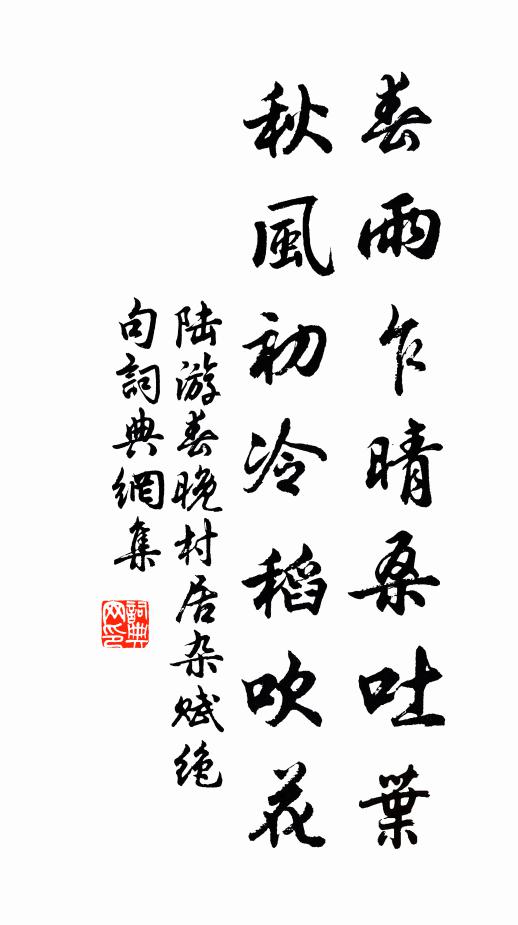 春雨乍晴桑吐葉
秋風初冷稻吹花
陆游春晚村居杂赋绝
句詞典網集
詞典网印